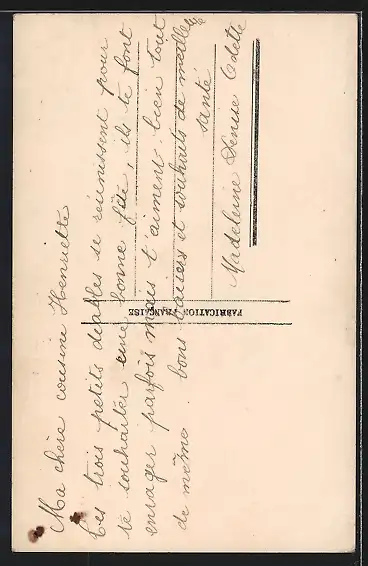 Ma chère cousine Henriette
Ces trois petits diables se réunissent pour
te souhaiter une bonne fête, ils te font
enrager parfois mais t'aiment bien tout
de même. bons baisers et souhaits de meilleure
santé
Madeleine Denise Odette
FABRICATION FRANÇAISE